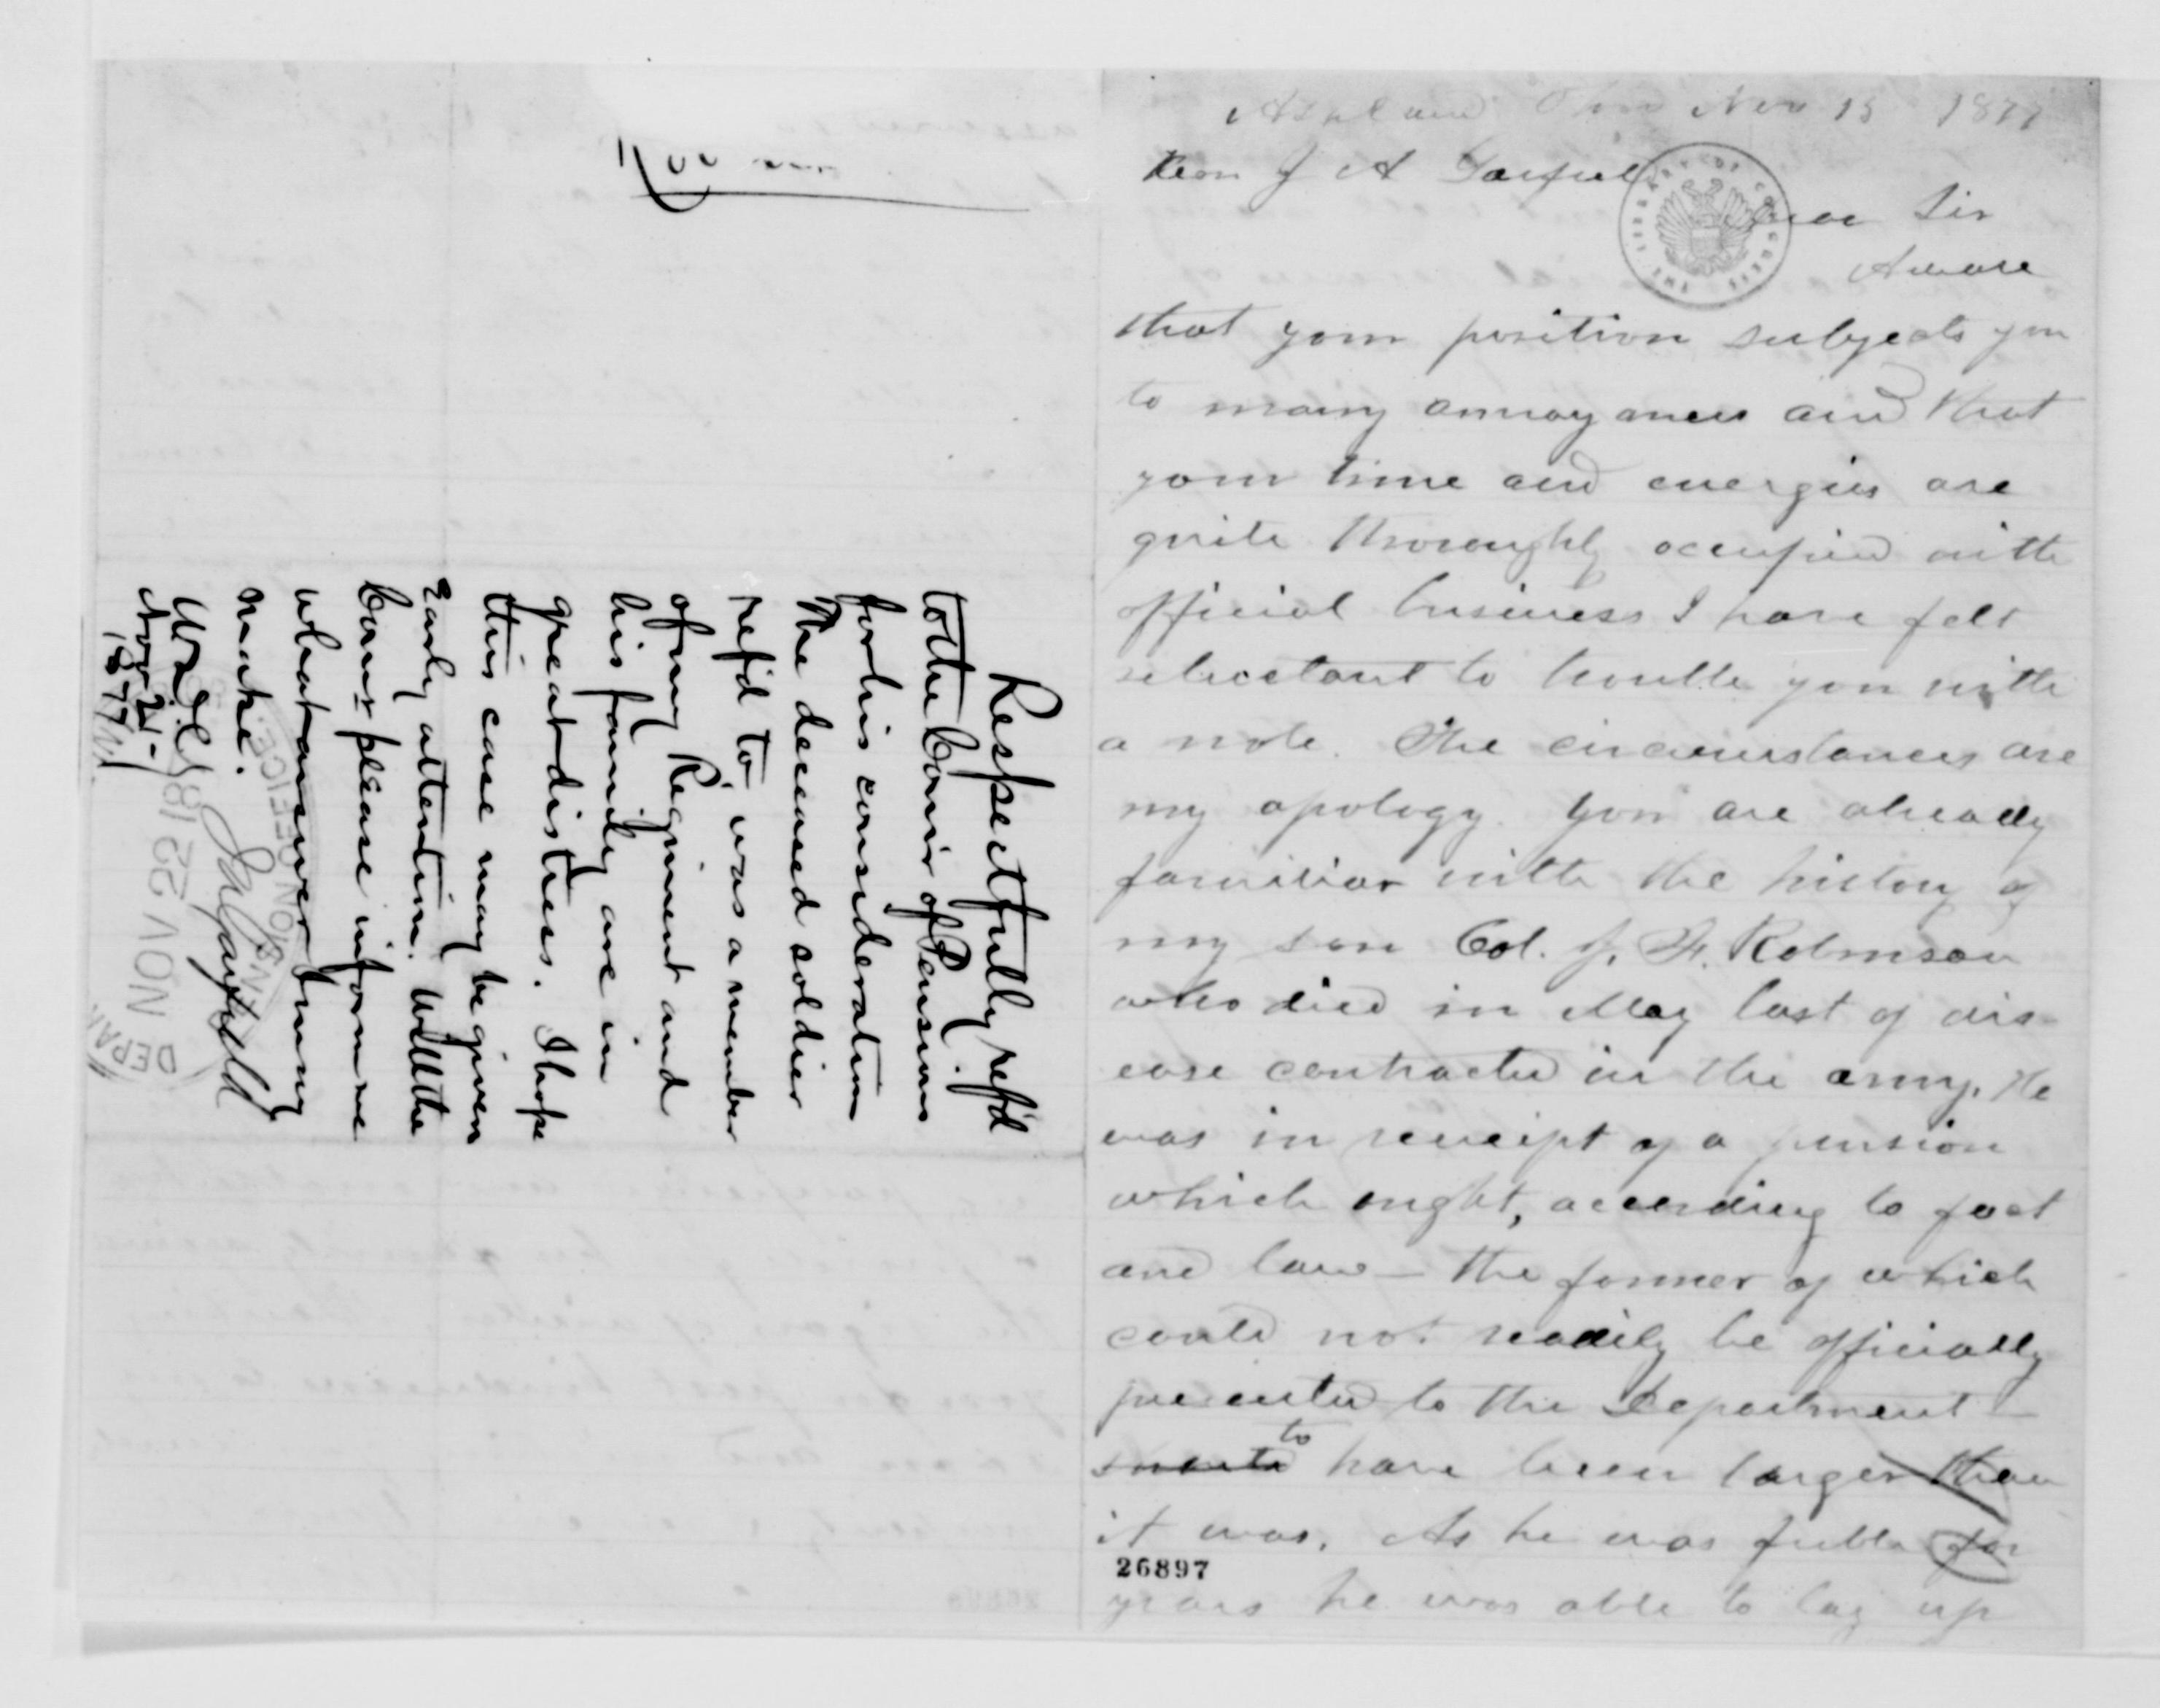 Ashland Ohio Nov 15 1877
Hon J A Garfield
Dear Sir
Aware
that your position subjects you
to many annoyances and that
your time and energies are
quite thoroughly occupied with
official business I have felt
reluctant to trouble you with
a note. The circumstances are
my apology. You are already
familiar with the history of
my son Col. J. F. Robinson
who died in May last of dis-
ease contracted in the army. He
was in receipt of a pension
which ought, according to fact
and law — the former of which
could not readily be officially
presented to the Department —
to have been larger than
it was. As he was feeble for
years he was able to lay up
26897
Respectfully ref'd
to the Com'r of Pensions
for his consideration.
The deceased soldier
ref'd to, was a member
of my Regiment and
his family are in
great distress. I hope
this case may be given
early attention. Will the
Com'r please inform me
what answer I may
make.
J A Garfield
Nov 21-
1877
NOV 22 18
PENSION OFFICE
DEPAR
THE LIBRARY OF CONGRESS